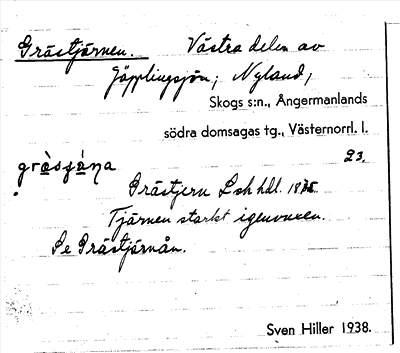 Grästjärnen. Västra delen av
Göpplingsjön; Nyland,
Skogs s:n., Ångermanlands
södra domsagas tg., Västernorrl. l.
23.
gròsjàna
Grästjern Lsk hdl. 1875.
Tjärnen starkt igenvuxen.
Se Grästjärnån.
Sven Hiller 1938.